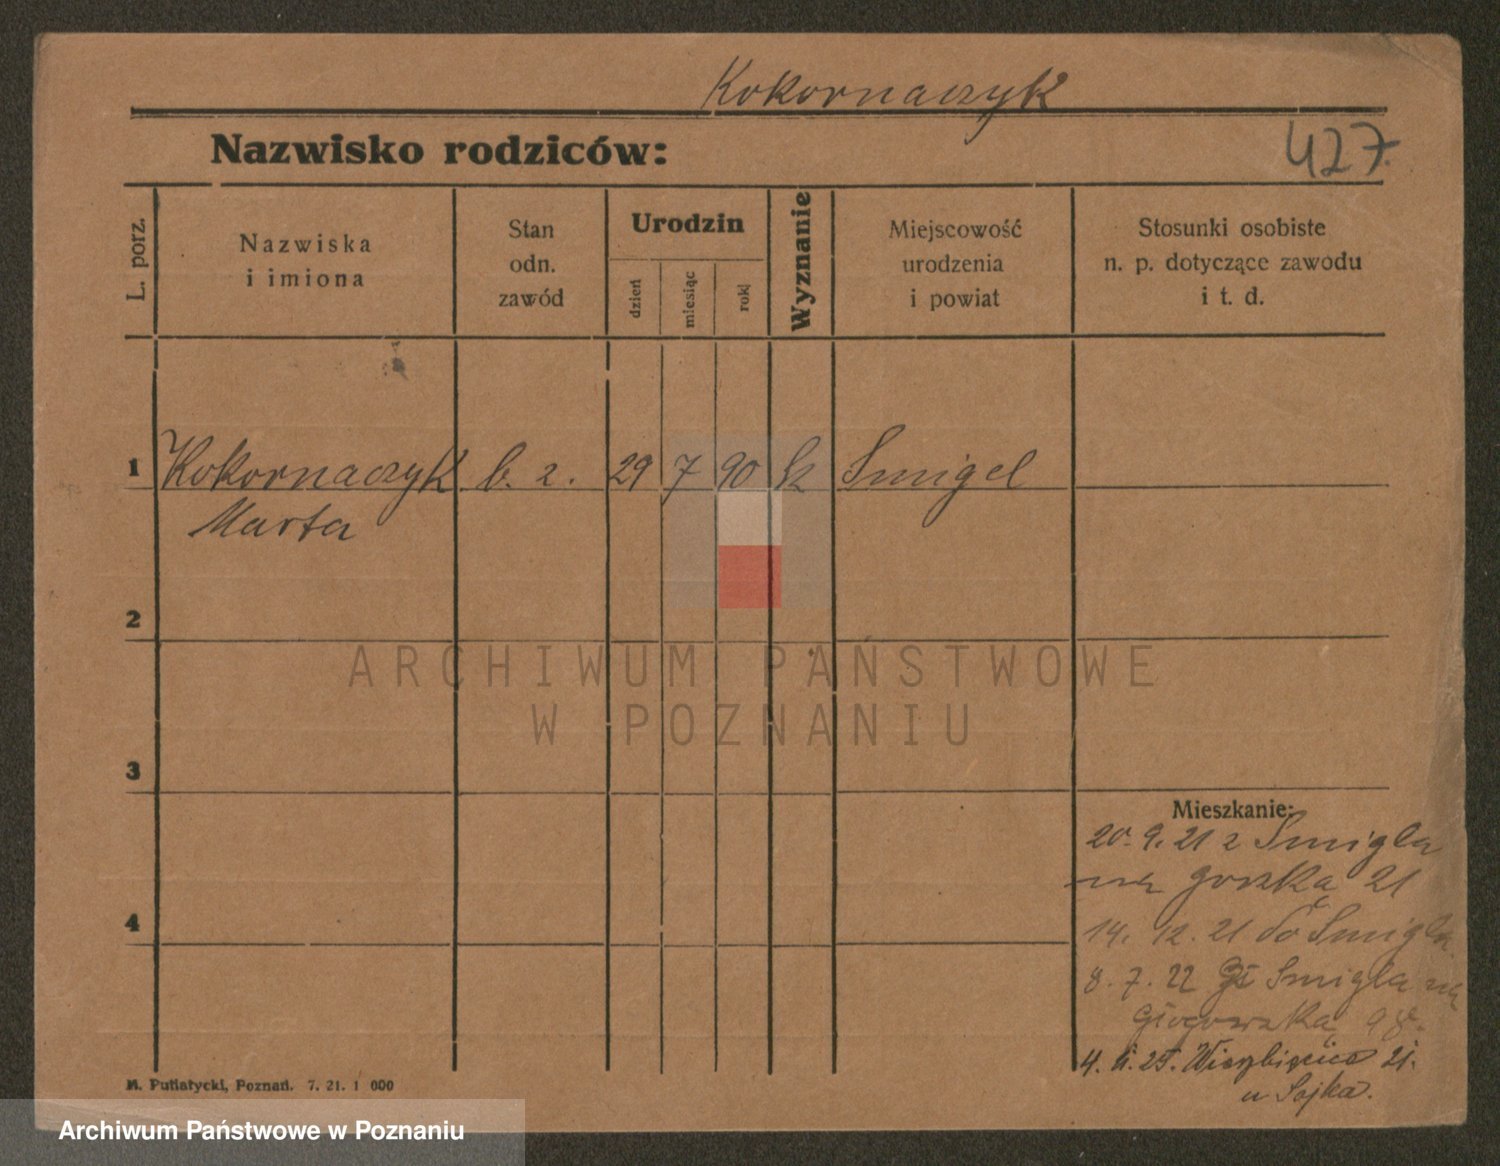 Kokornaczyk
Nazwisko rodziców:
427.
L. porz.
Nazwiska
i imiona
Stan
odn.
zawód
Urodzin
dzień
miesiąc
rok
Wyznanie
Miejscowość
urodzenia
i powiat
Stosunki osobiste
n. p. dotyczące zawodu
i t. d.
1 Kokornaczyk b. z. 29 7 90 k Smigel
Marta
2
ARCHIWUM PAŃSTWOWE
W POZNANIU
3
Mieszkanie:
20. 9. 21 z Smigla
na 21
4
14. 12. 21 do Smigla
8. 7. 22 Smigla na
Głogowska 98.
4. 25. Wierzbięcice 21.
u Sojka.
M. Putiatycki, Poznań. 7. 21. 1 000
Archiwum Państwowe w Poznaniu